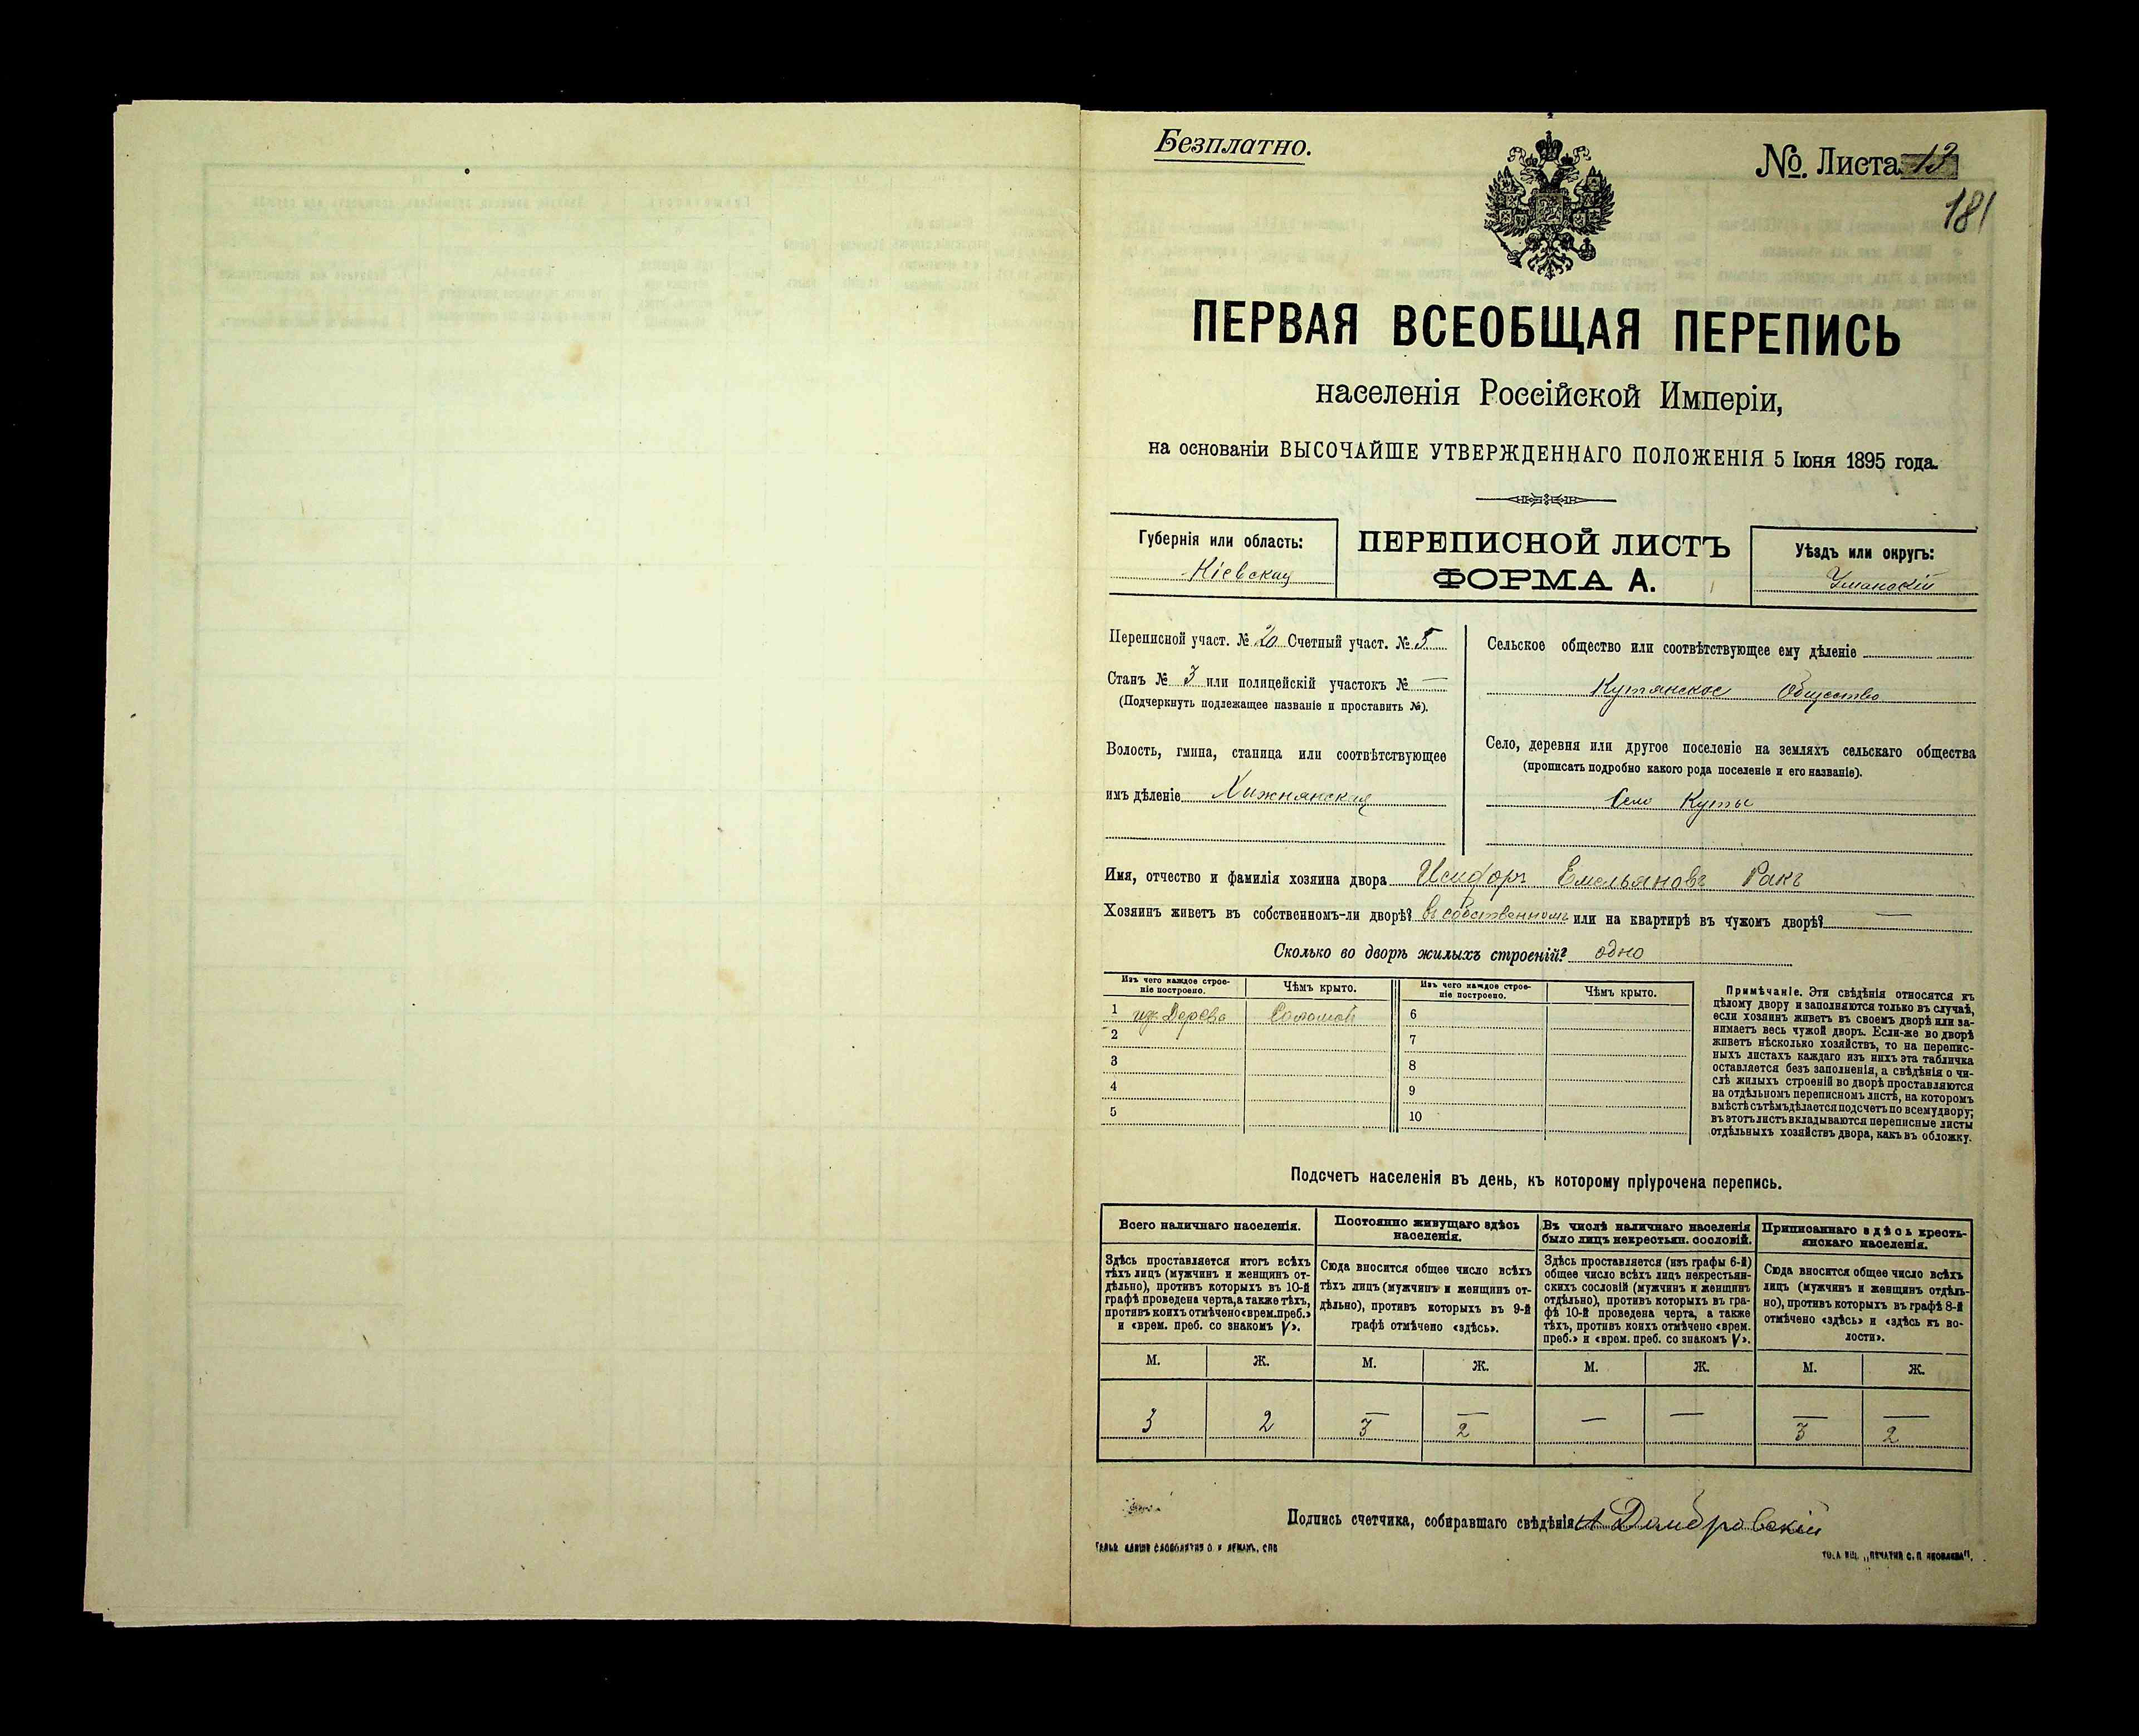 Безплатно.
№ Листа 13
181
ПЕРВАЯ ВСЕОБЩАЯ ПЕРЕПИСЬ
населенія Россійской Имперіи,
на основаніи ВЫСОЧАЙШЕ УТВЕРЖДЕННАГО ПОЛОЖЕНІЯ 5 Іюня 1895 года.
Губернія или область:
Кіевская
ПЕРЕПИСНОЙ ЛИСТЪ
ФОРМА А.
Уѣздъ или округъ:
Уманскій
Переписной участ. № 20 Счетный участ. № 5
Станъ № 3 или полицейскій участокъ № —
(Подчеркнуть подлежащее названіе и проставить №).
Волость, гмина, станица или соотвѣтствующее
имъ дѣленіе Хижнянская
Сельское общество или соотвѣтствующее ему дѣленіе
Кутянское Общество
Село, деревня или другое поселеніе на земляхъ сельскаго общества
(прописать подробно какого рода поселеніе и его названіе).
Село Куты
Имя, отчество и фамилія хозяина двора Исидоръ Емельяновъ Ракъ
Хозяинъ живетъ въ собственномъ-ли дворѣ? въ собственномъ или на квартирѣ въ чужомъ дворѣ? —
Сколько во дворѣ жилыхъ строеній? одно
Изъ чего каждое строе-
ніе построено.
Чѣмъ крыто.
Изъ чего каждое строе-
ніе построено.
Чѣмъ крыто.
1 изъ Дерева Соломой
2
3
4
5
6
7
8
9
10
Примѣчаніе. Эти свѣдѣнія относятся къ
цѣлому двору и заполняются только въ случаѣ,
если хозяинъ живетъ въ своемъ дворѣ или за-
нимаетъ весь чужой дворъ. Если-же во дворѣ
живетъ нѣсколько хозяйствъ, то на перепис-
ныхъ листахъ каждаго изъ нихъ эта табличка
оставляется безъ заполненія, а свѣдѣнія о чи-
слѣ жилыхъ строеній во дворѣ проставляются
на отдѣльномъ переписномъ листѣ, на которомъ
вмѣстѣ съ тѣмъ дѣлается подсчетъ по всему двору;
въ этотъ листъ вкладываются переписные листы
отдѣльныхъ хозяйствъ двора, какъ въ обложку.
Подсчетъ населенія въ день, къ которому пріурочена перепись.
Всего наличнаго населенія.
Здѣсь проставляется итогъ всѣхъ
тѣхъ лицъ (мужчинъ и женщинъ от-
дѣльно), противъ которыхъ въ 10-й
графѣ проведена черта, а также тѣхъ,
противъ коихъ отмѣчено «врем. преб.»
и «врем. преб. со знакомъ V».
Постоянно живущаго здѣсь
населенія.
Сюда вносится общее число всѣхъ
тѣхъ лицъ (мужчинъ и женщинъ от-
дѣльно), противъ которыхъ въ 9-й
графѣ отмѣчено «здѣсь».
Въ числѣ наличнаго населенія
было лицъ некрестьян. сословій.
Здѣсь проставляется (изъ графы 6-й)
общее число всѣхъ лицъ некрестьян-
скихъ сословій (мужчинъ и женщинъ
отдѣльно), противъ которыхъ въ гра-
фѣ 10-й проведена черта, а также
тѣхъ, противъ коихъ отмѣчено «врем.
преб.» и «врем. преб. со знакомъ V».
Приписаннаго здѣсь кресть-
янскаго населенія.
Сюда вносится общее число всѣхъ
лицъ (мужчинъ и женщинъ отдѣль-
но), противъ которыхъ въ графѣ 8-й
отмѣчено «здѣсь» и «здѣсь къ во-
лости».
М. Ж. М. Ж. М. Ж. М. Ж.
3 2 3 2 — — 3 2
Подпись счетчика, собиравшаго свѣдѣнія А Домбровскій